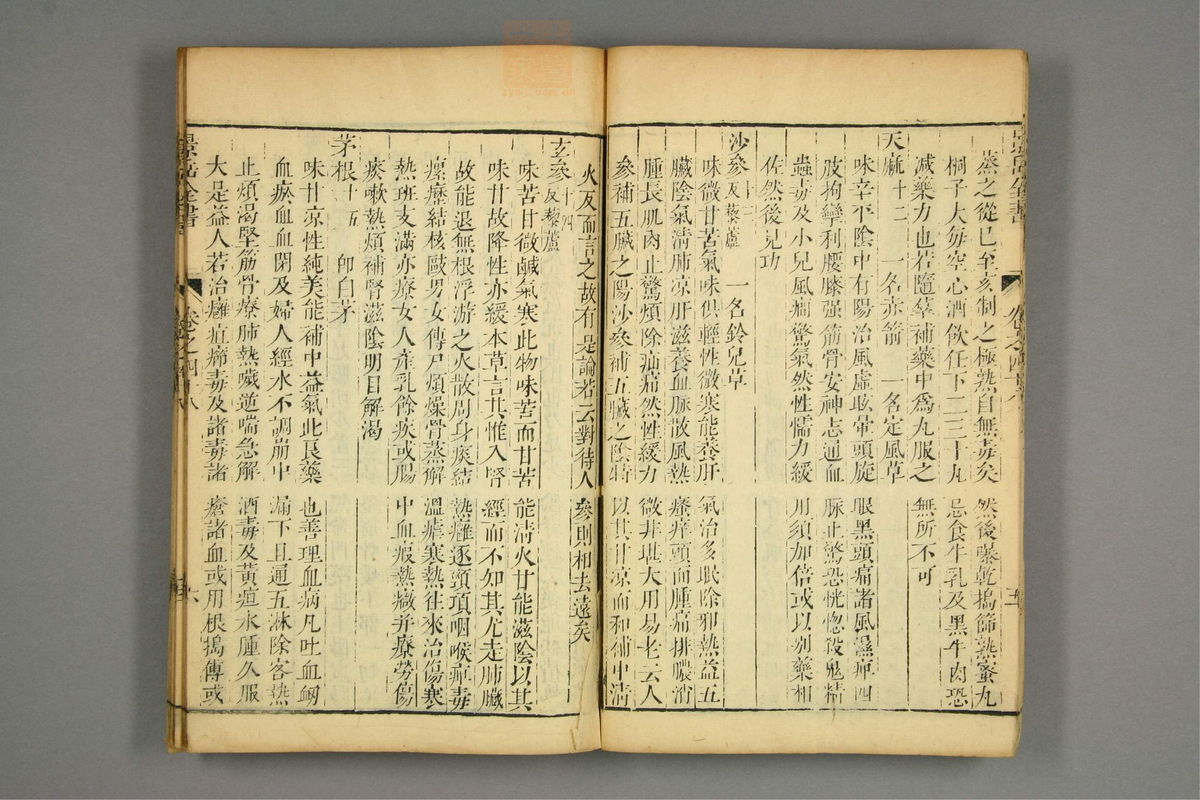 蒸之從巳至亥制之極熟自無毒矣然後曝乾搗篩熟蜜丸
桐子大每空心酒飲任下二三十丸忌食牛乳及黑牛肉恐
減藥力也若隨羣補藥中為丸服之無所不可
天麻十二 一名赤箭 一名定風草
味辛平陰中有陽治風虛眩暈頭旋眼黑頭痛諸風濕痺四
肢拘攣利腰膝强筋骨安神志通血脉止驚恐恍惚殺鬼精
蟲毒及小兒風癇驚氣然性懦力緩用須加倍或以别藥相
佐然後見功
沙參十三反藜蘆 一名鈴兒草
味微甘苦氣味俱輕性微寒能養肝氣治多眠除邪熱益五
臟陰氣清肺凉肝滋養血脉散風熱瘙痒頭面腫痛排膿消
腫長肌肉止驚煩除疝痛然性緩力微非堪大用易老云人
參補五臟之陽沙參補五臟之陰特以其甘凉而和補中清
火反而言之故有是論若云對待人參則相去遠矣
玄參十四反藜蘆
味苦甘微鹹氣寒此物味苦而甘苦能清火甘能滋陰以其
味甘故降性亦緩本草言其惟入腎經而不知其尤走肺臟
故能退無根浮游之火散周身痰結熱癰逐頸項咽喉痺毒
瘰癧結核歐男女傳尸煩燥骨蒸解溫瘧寒熱往來治傷寒
熱班支滿亦療女人產乳餘疾或腸中血瘕熱癥并療勞傷
痰嗽熱煩補腎滋陰明目解渴
茅根十五 即白茅
味甘凉性純美能補中益氣此良藥也善理血病凡吐血衂
血瘀血血閉及婦人經水不調崩中漏下且通五淋除客熱
止煩渴堅筋骨療肺熱噦逆喘急解酒毒及黃疸水腫久服
大是益人若治癰疽癤毒及諸毒諸瘡諸血或用根搗傅或
景岳全書 卷之四十八 六